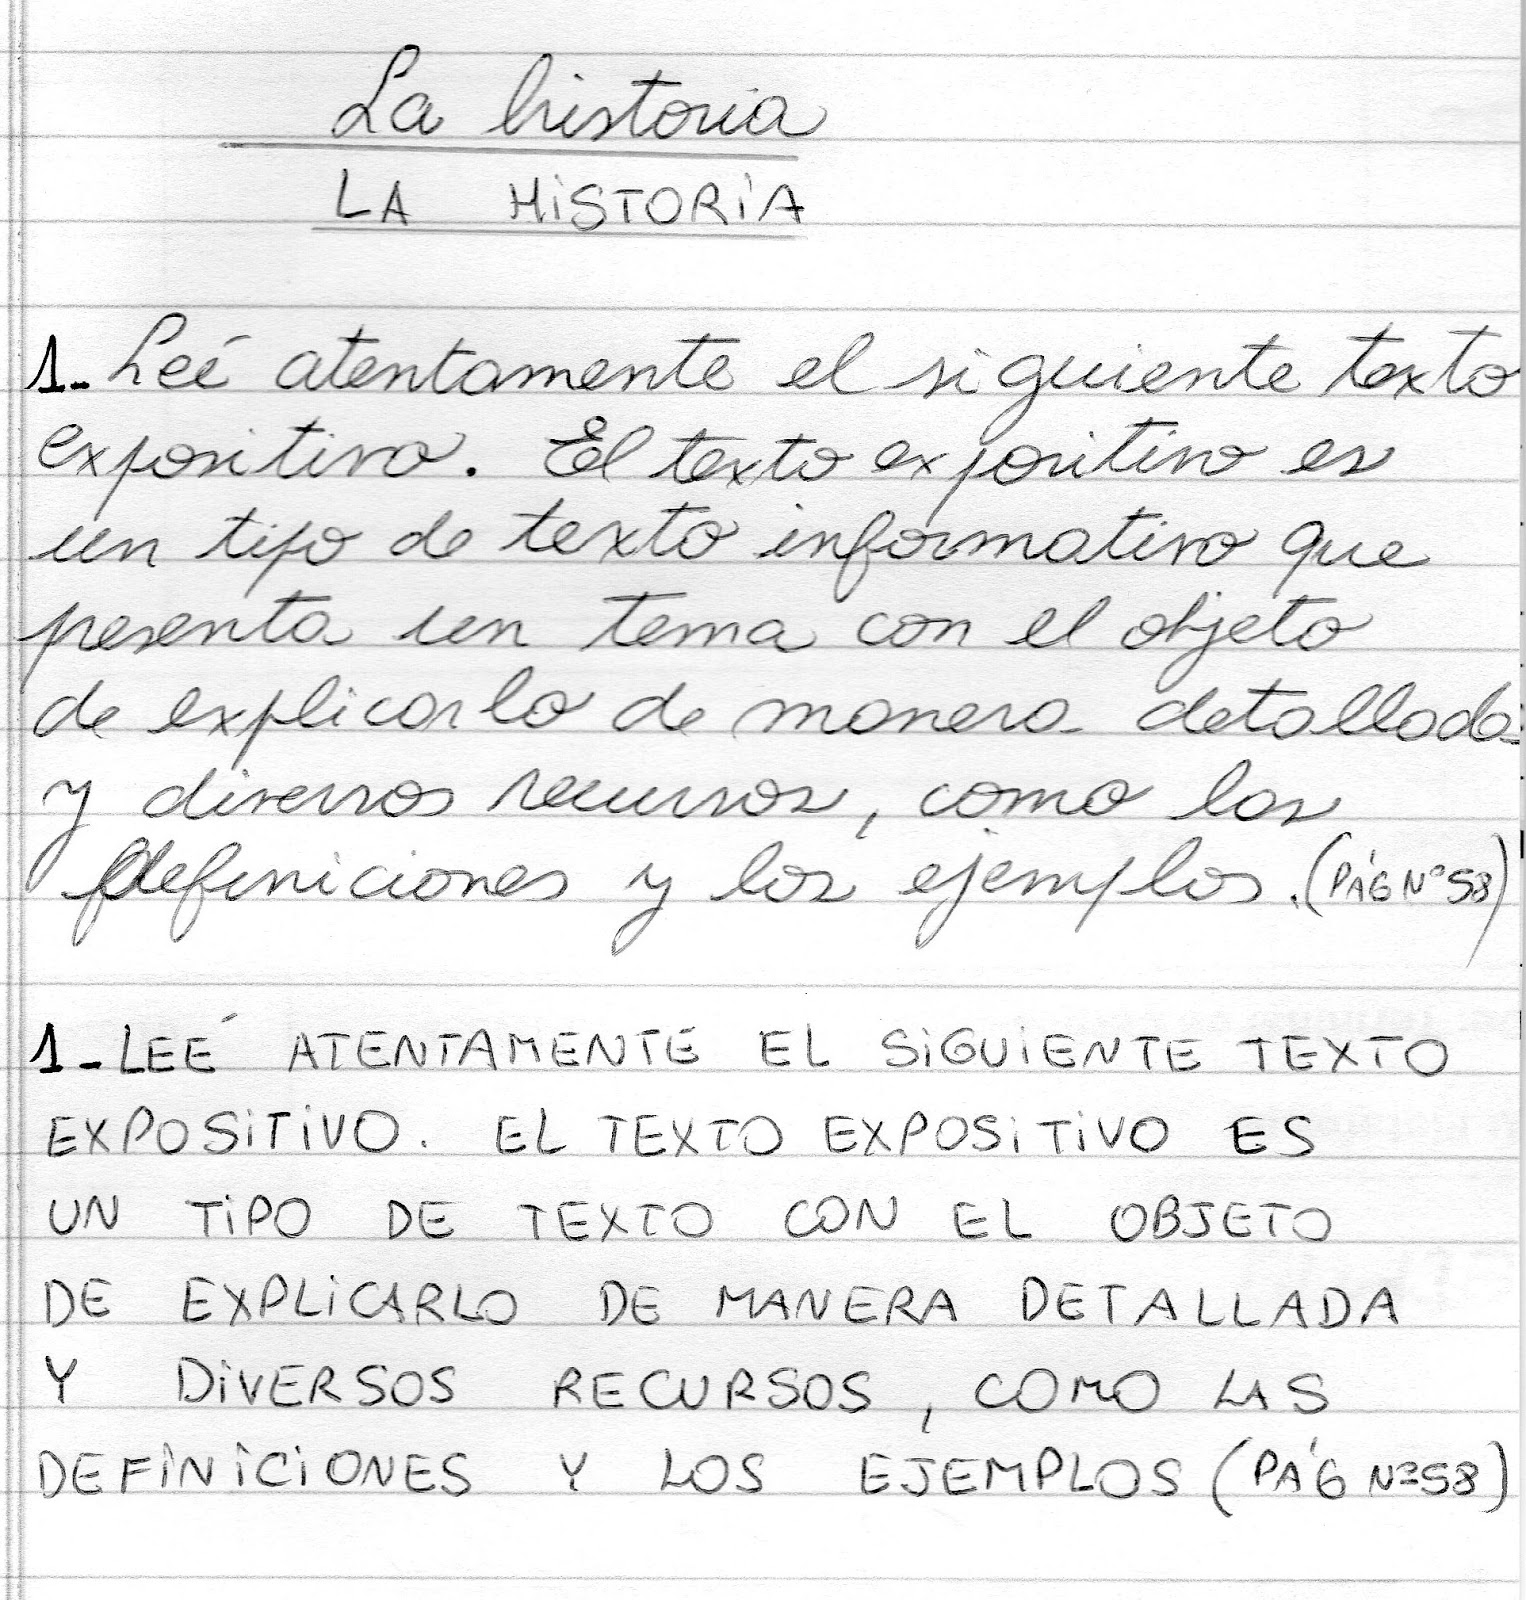 La historia
LA HISTORIA
1- Leé atentamente el siguiente texto
expositivo. El texto expositivo es
un tipo de texto informativo que
presenta un tema con el objeto
de explicarlo de manera detallada
y diversos recursos, como las
definiciones y los ejemplos. (PÁG Nº 58)
1- LEÉ ATENTAMENTE EL SIGUIENTE TEXTO
EXPOSITIVO. EL TEXTO EXPOSITIVO ES
UN TIPO DE TEXTO CON EL OBJETO
DE EXPLICARLO DE MANERA DETALLADA
Y DIVERSOS RECURSOS, COMO LAS
DEFINICIONES Y LOS EJEMPLOS (PÁG Nº 58)